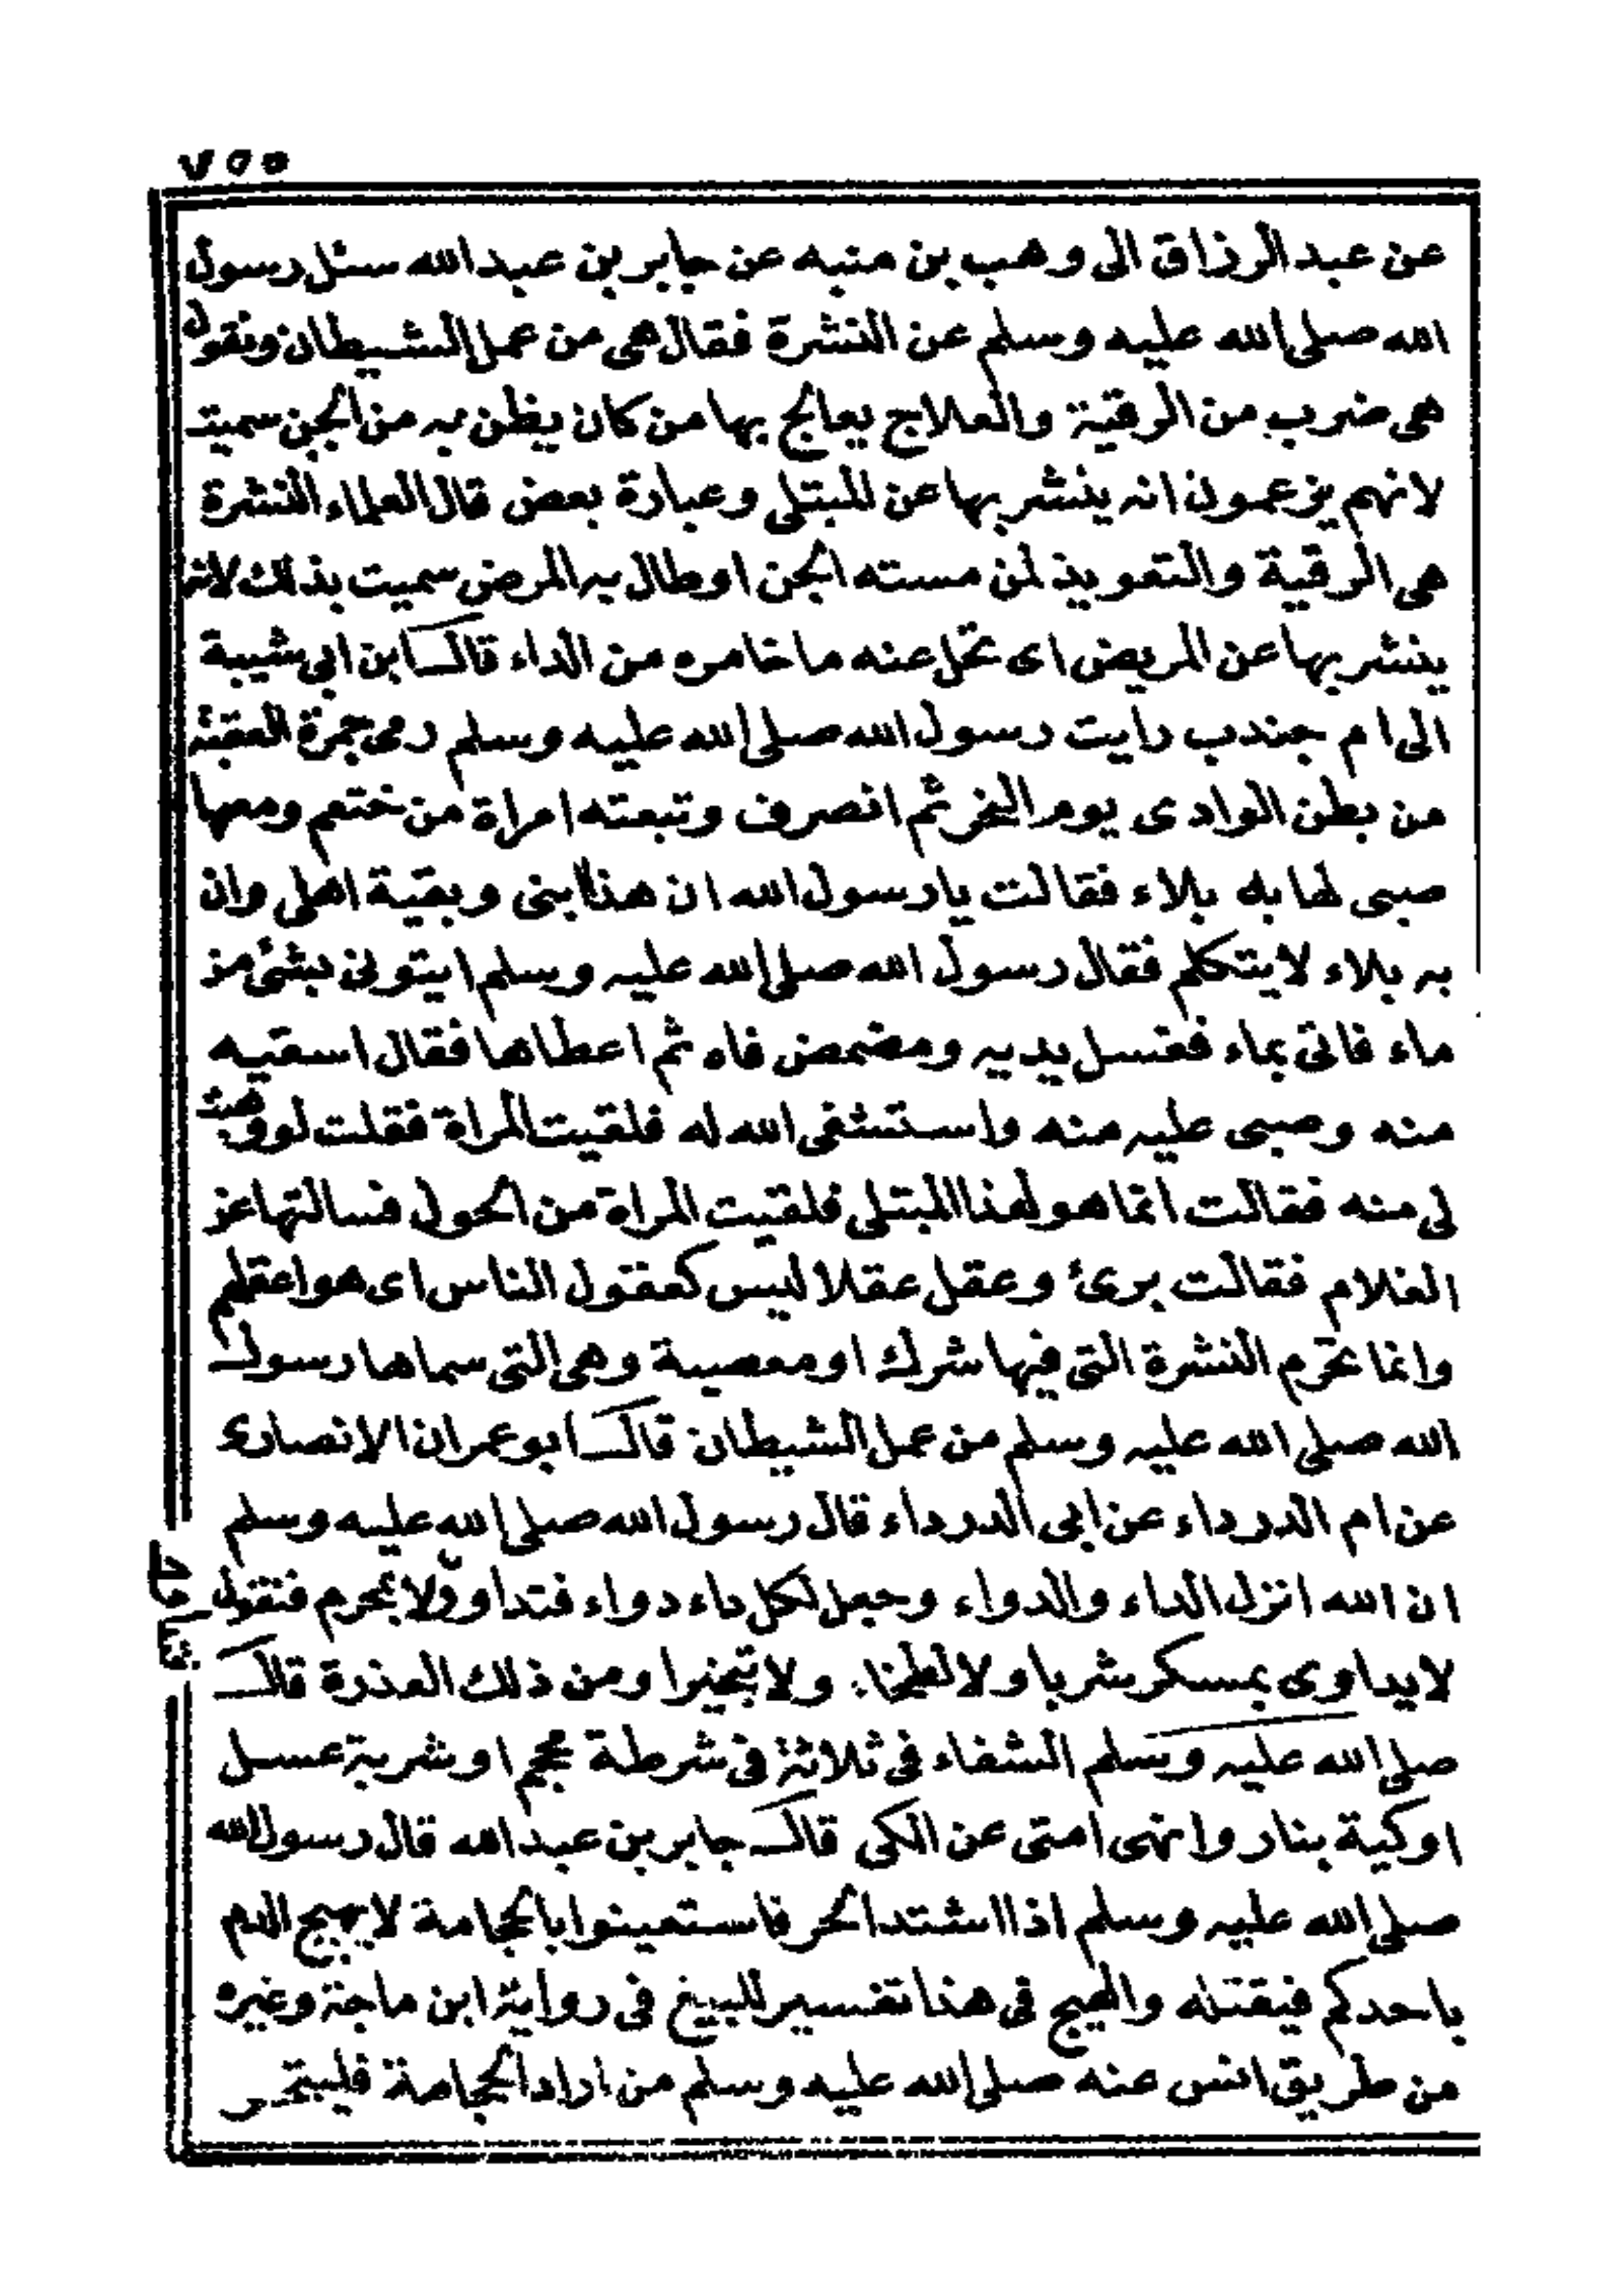 ٧٥٥
عن عبد الرزاق الى وهب بن منبه عن جابر بن عبد الله سئل رسول
الله صلى الله عليه وسلم عن النشرة فقال هى من عمل الشيطان ونقول
هى ضرب من الرقية والعلاج يعالج بها من كان يظن به من الجن سميت
لانهم يزعمون انه ينشر بها عن المبتلى وعبارة بعض قال العلماء النشرة
هى الرقية والتعويذ لمن مسته الجن او طال به المرض سميت بذلك لانه
ينشر بها عن المريض اى تحل عنه ما خامره من الداء قال ابن ابى شيبة
الى ام جندب رايت رسول الله صلى الله عليه وسلم رمى جمرة العقبة
من بطن الوادى يوم النحر ثم انصرف وتبعته امراة من ختعم ومعها
صبى لها به بلاء فقالت يا رسول الله ان هذا ابنى وبقية اهلى وان
به بلاء لا يتكلم فقال رسول الله صلى الله عليه وسلم ايتونى بشئ من
ماء فاتى بماء فغسل يديه ومضمض فاه ثم اعطاها فقال اسقيه
منه وصبى عليه منه واستشفى الله له فلقيت المراة فقلت لو وهبت
لى منه فقالت انما هو لهذا المبتلى فلقيت المراة من الحول فسالتها عن
الغلام فقالت برئ وعقل عقلا ليس كعقول الناس اى هو اعقلهم
وانما تحرم النشرة التى فيها شرك او معصية وهى التى سماها رسول
الله صلى الله عليه وسلم من عمل الشيطان قال ابو عمران الانصارى
عن ام الدرداء عن ابى الدرداء قال رسول الله صلى الله عليه وسلم
ان الله انزل الداء والدواء وجعل لكل داء دواء فتداووا ولا بمحرم فنقول
لا يداوى بمسكر شربا ولا لطخا ولا تبخيرا ومن ذلك العذرة قال
صلى الله عليه وسلم الشفاء فى ثلاثة فى شرطة محجم او شربة عسل
او كية بنار وانهى امتى عن الكى قال جابر بن عبد الله قال رسول الله
صلى الله عليه وسلم اذا اشتد الحر فاستعينوا بالحجامة لا يهيج الدم
باحدكم فيقتله والهيج فى هذا تفسير للبيغ فى رواية ابن ماجة وغيره
من طريق انس عنه صلى الله عليه وسلم من اراد الحجامة فليتحر